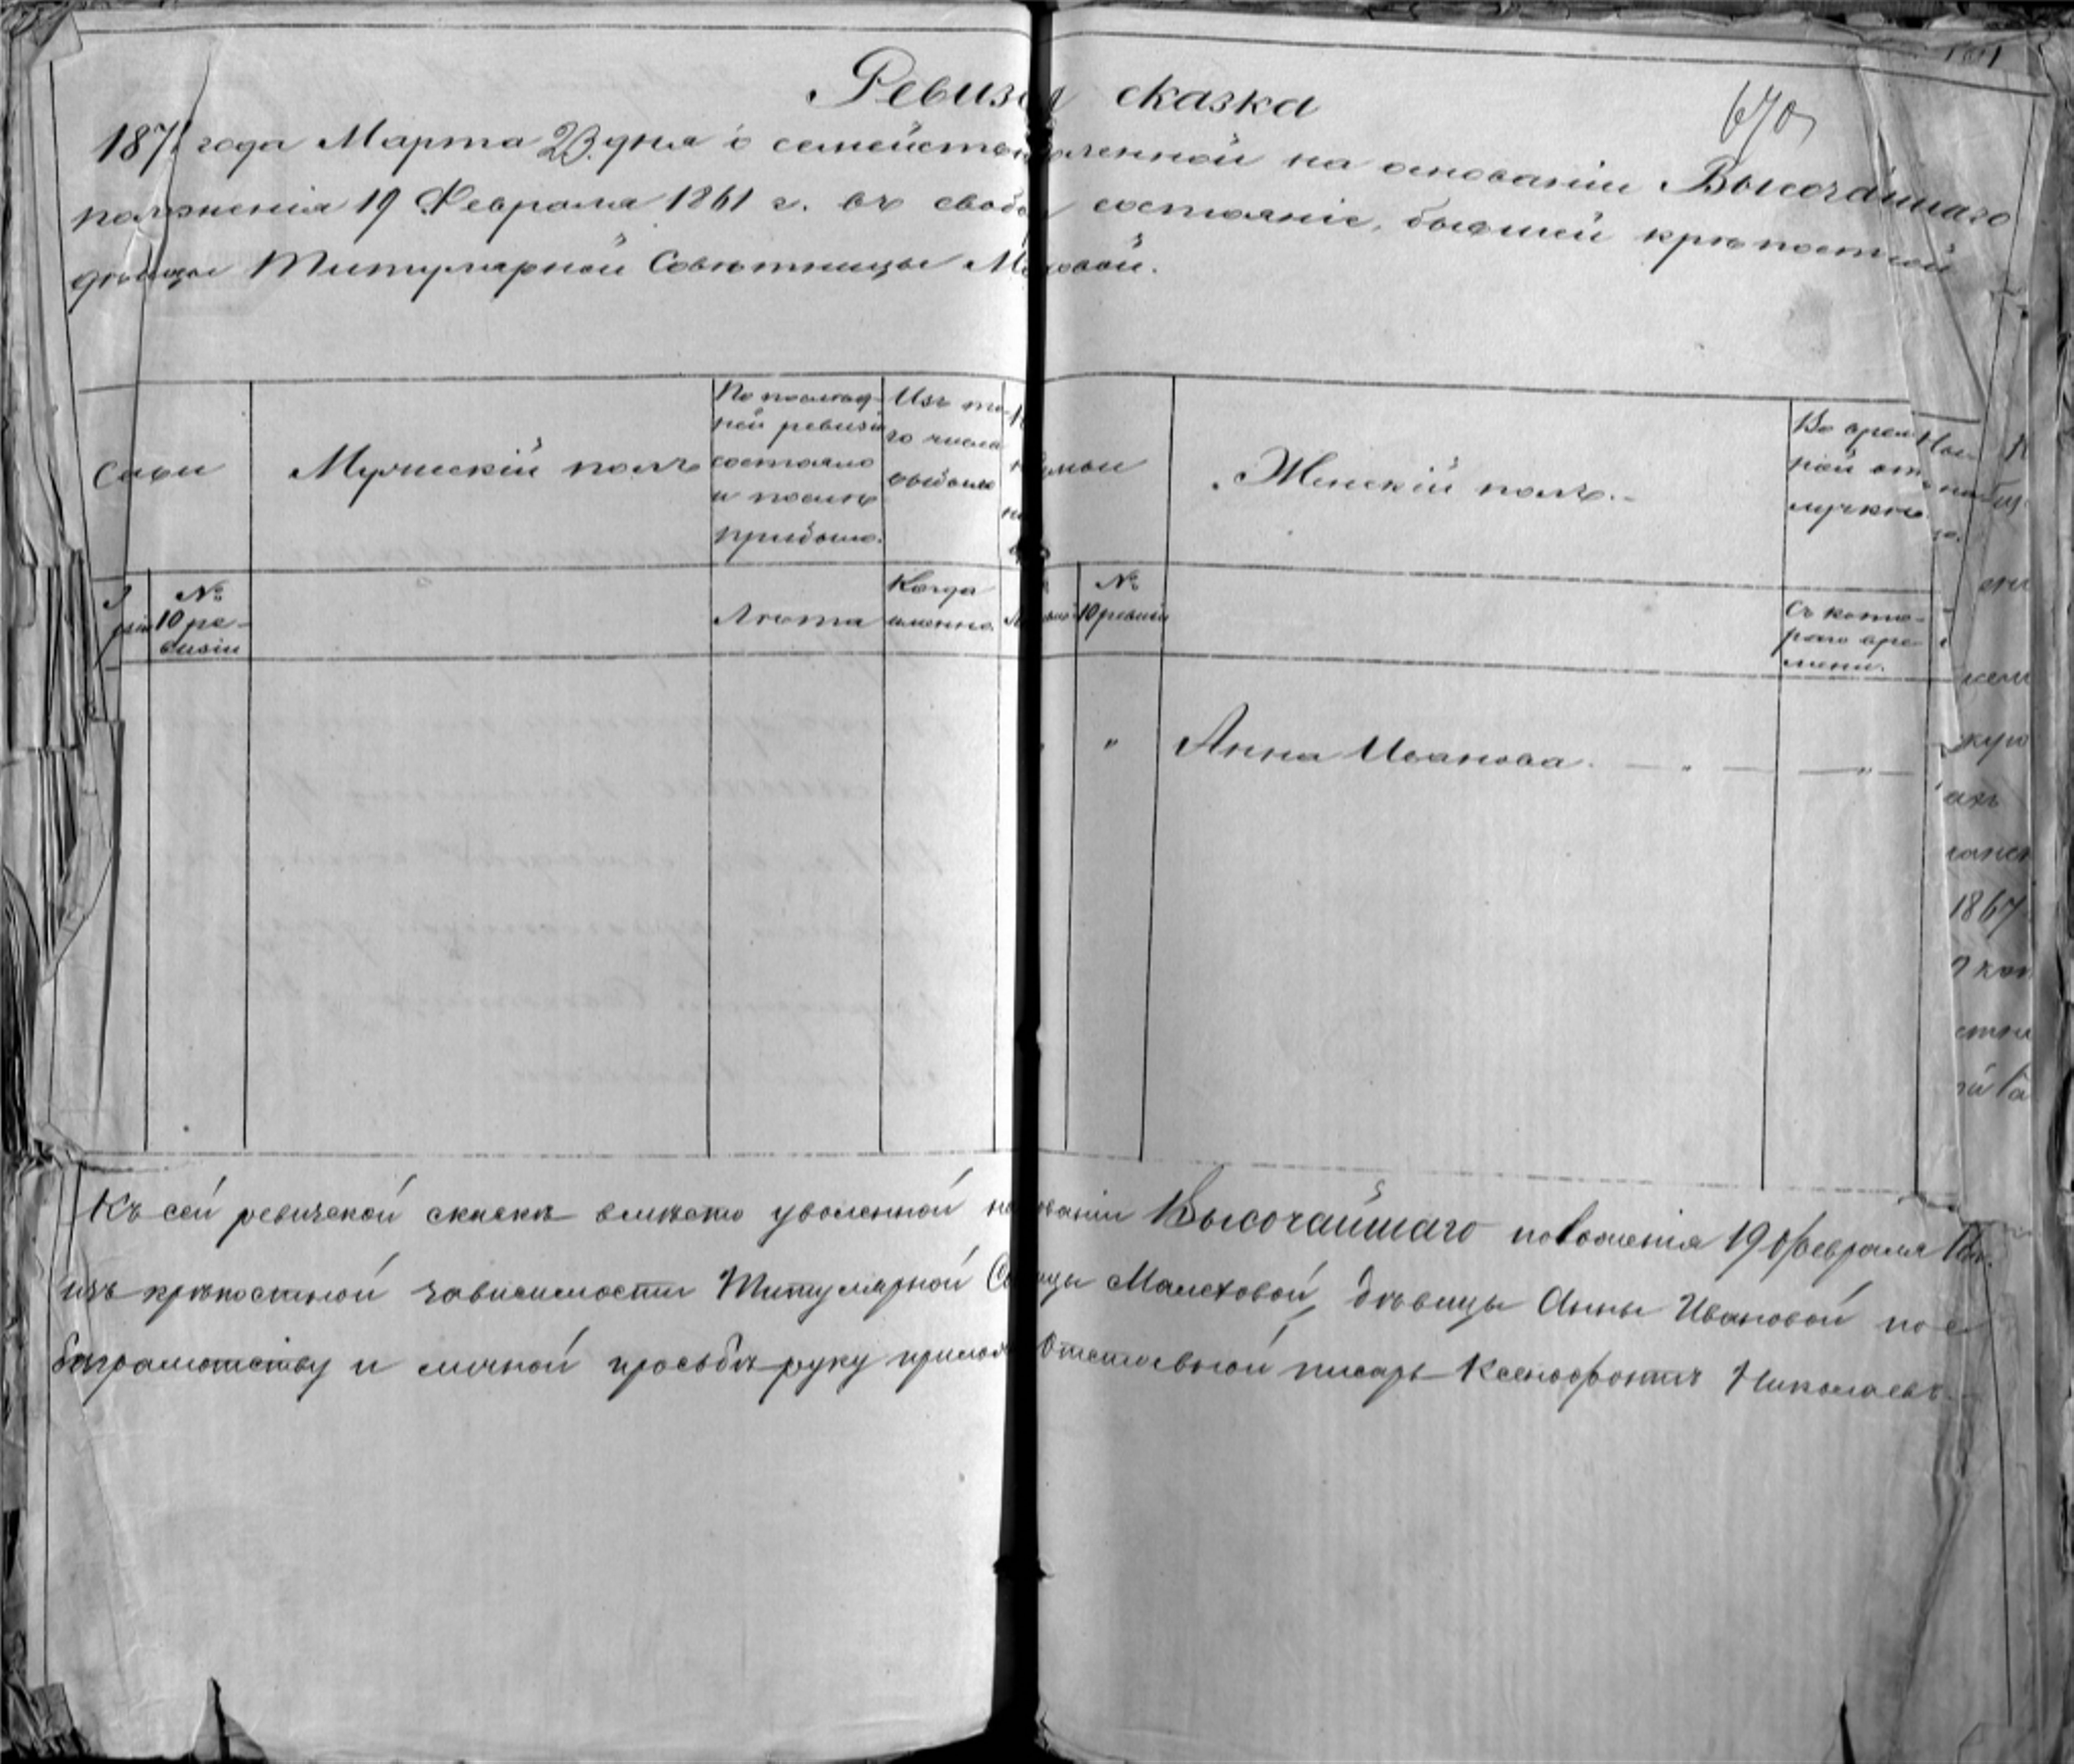 Ревиз я сказка
670
187 года Марта 23 дня о семейств ленной на основаніи Высочайшаго
положенія 19 Февраля 1861 г. въ свобо состояніе, бывшей крѣпостной
дѣвицы Титулярной Совѣтницы М ховой.
Мужескій полъ
По послѣд-
ней ревизіи
состояло
и послѣ
прибыло.
Изъ то-
го числа
выбыло
Женскій полъ.
Во врем
ной от
лучкѣ
№
10 ре-
визіи
Лѣта
Когда
именно
№
10 ревизіи
Съ кото-
раго вре-
мени.
" Анна Иванова. — " — — " —
1867
Къ сей ревизской сказкѣ вмѣсто уволенной на ованіи Высочайшаго положенія 19 Февраля
изъ крѣпостной зависимости Титулярной Со ицы Малеховой, дѣвицы Анны Ивановой по е
безграмотству и личной просьбѣ руку прилож Отставной писарь Ксенофонтъ Николаевъ.